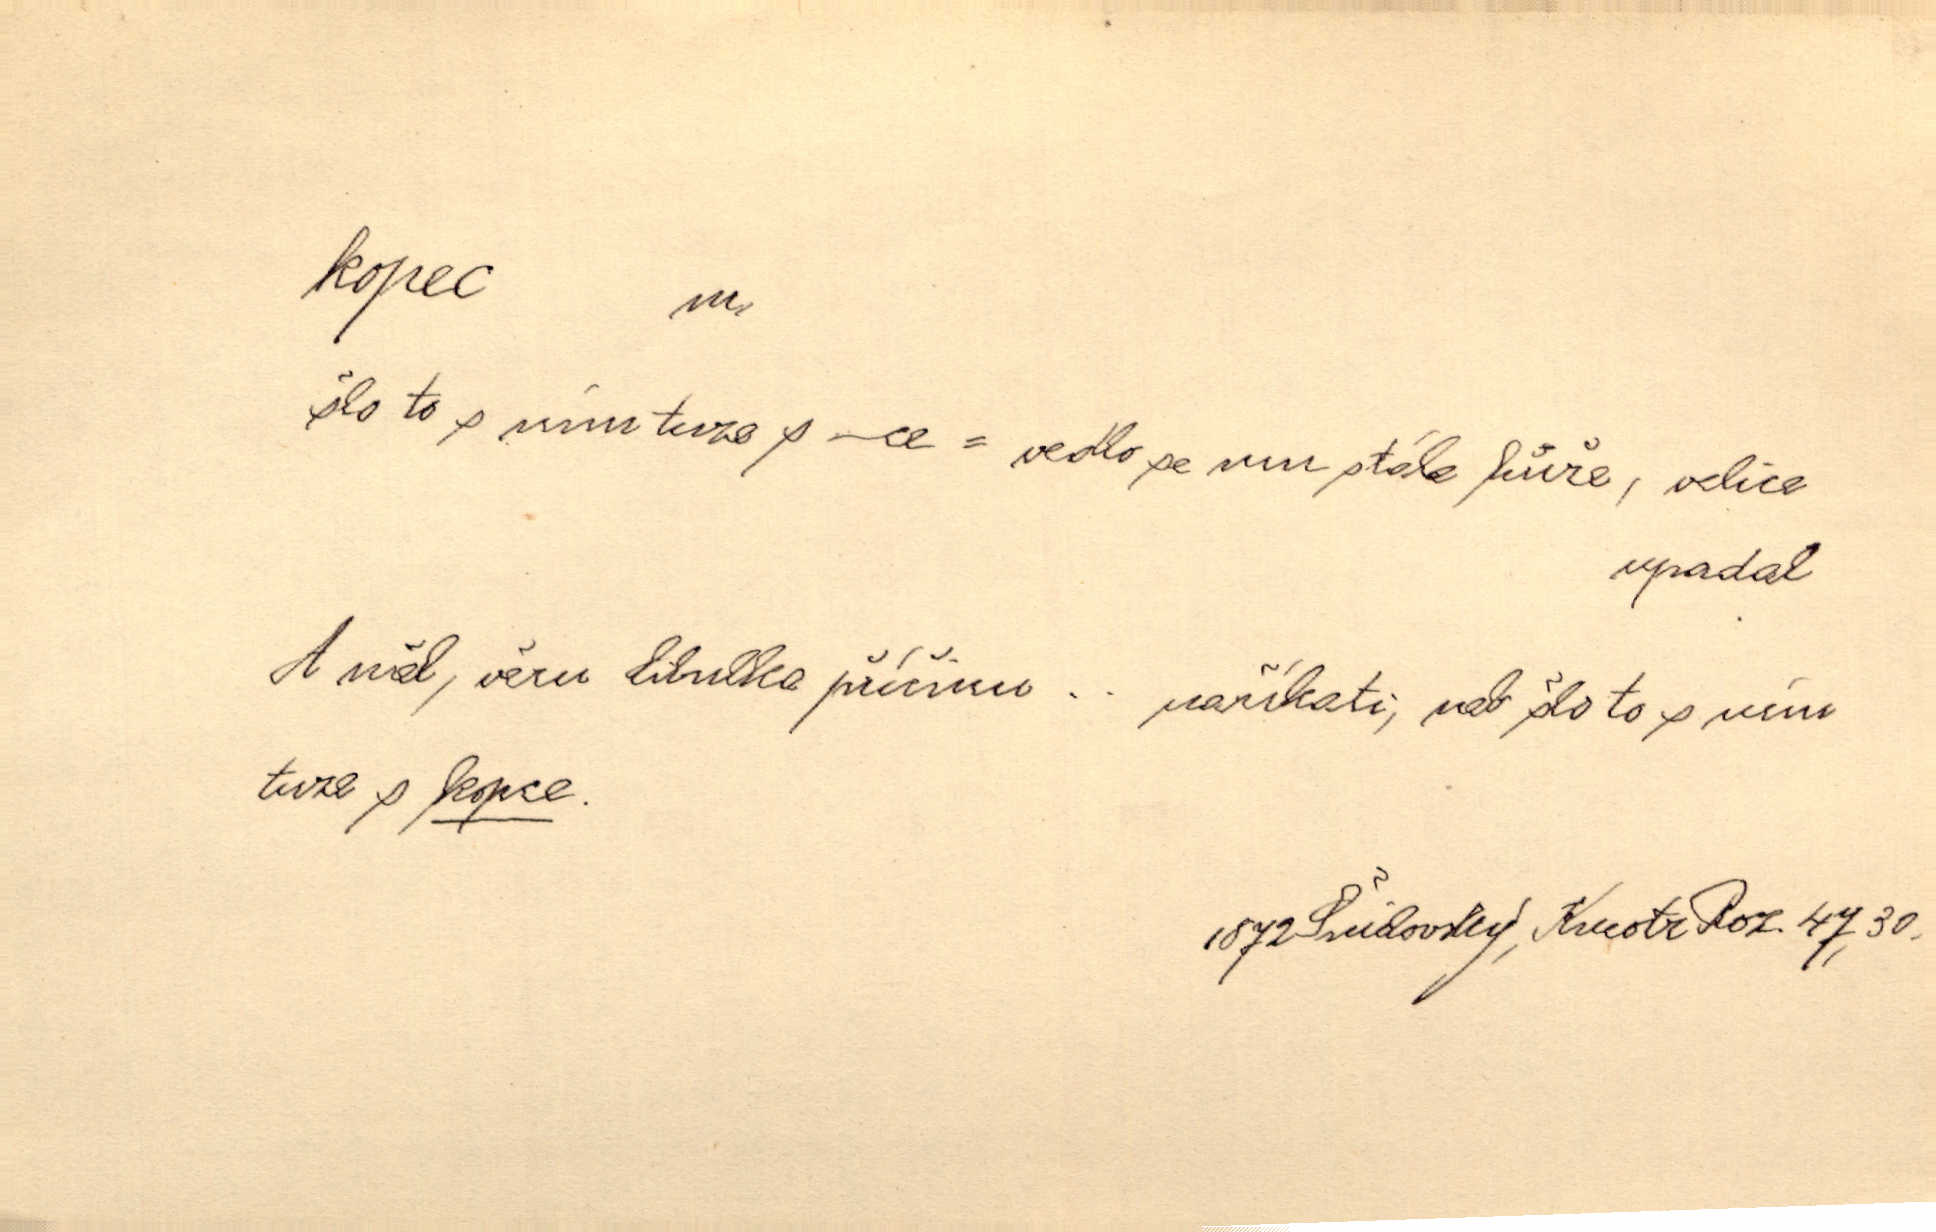 kopec m.
šlo to s ním tuze s –ce = vedlo se mu stále hůře, velice
upadal
A měl, věru Cibulka příčinu .. naříkati, neb šlo to s ním
tuze s kopce.
1872 Šnidovský, Kmotr Roz. 47, 30.